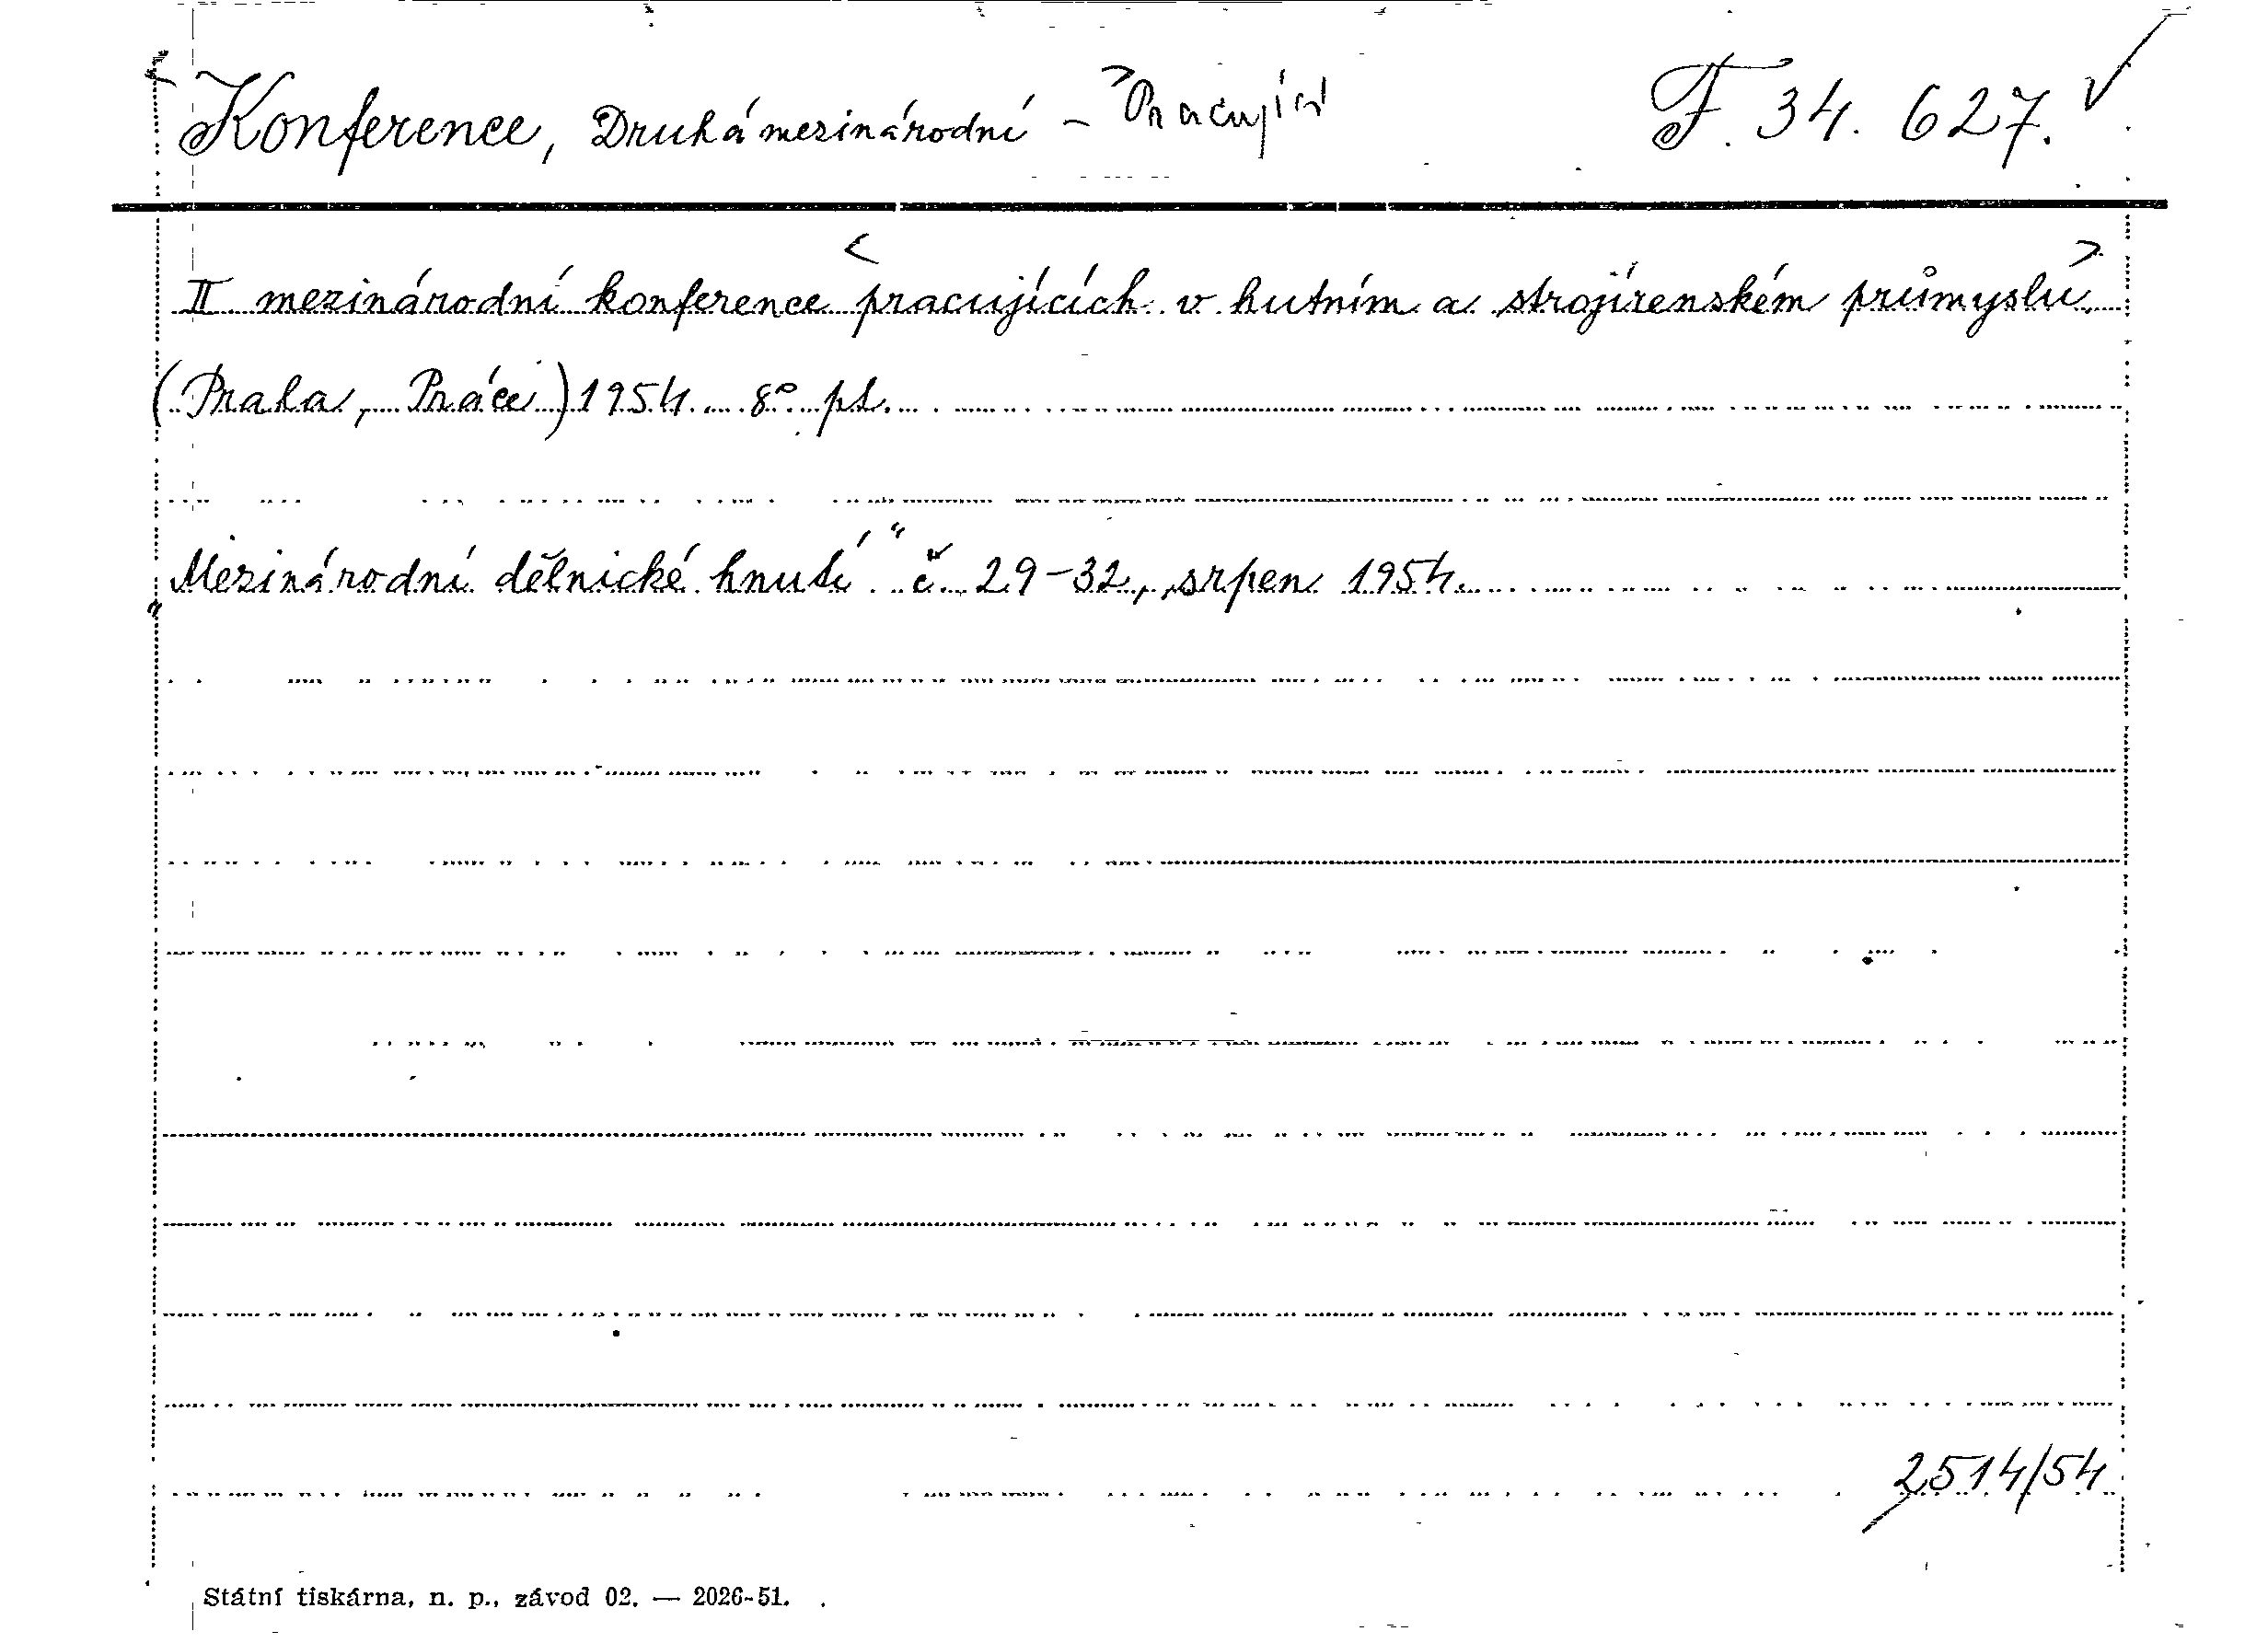 <Konference, Druhá mezinárodní - >Pracující F. 34. 627.
II mezinárodní konference <pracujících v hutním a strojírenském průmyslu.>
(Praha, Práce) 1954. 8° pt.
"Mezinárodní dělnické hnutí" č. 29-32, srpen 1954.
2514/54
Státní tiskárna, n. p., závod 02. — 2026-51.